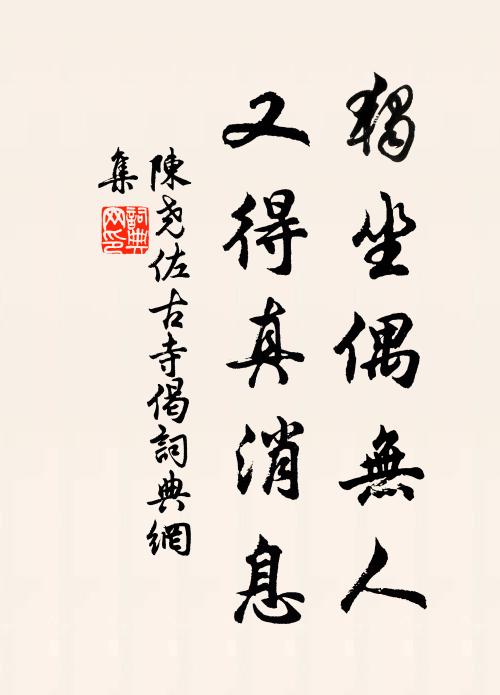 獨坐偶無人
又得真消息
陳堯佐古寺偈詞典網
集
詞典網印